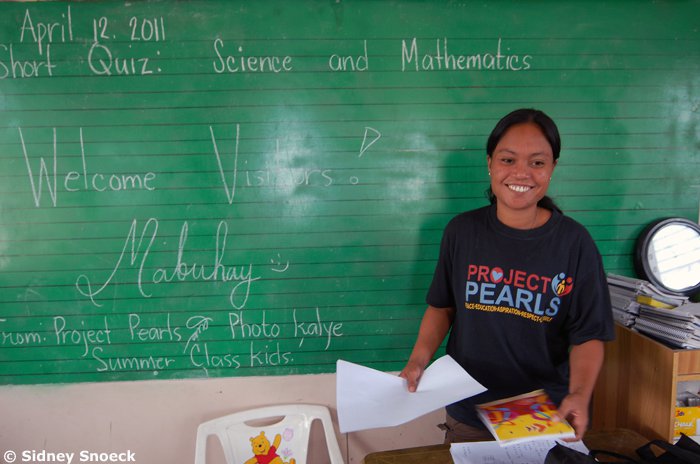 April 12, 2011
Short Quiz: Science and Mathematics
Welcome Visitors!
Mabuhay
From: Project Pearls & Photo kalye
Summer Class kids.
PROJECT
PEARLS
PEACE·EDUCATION·ASPIRATION·RESPECT
© Sidney Snoeck